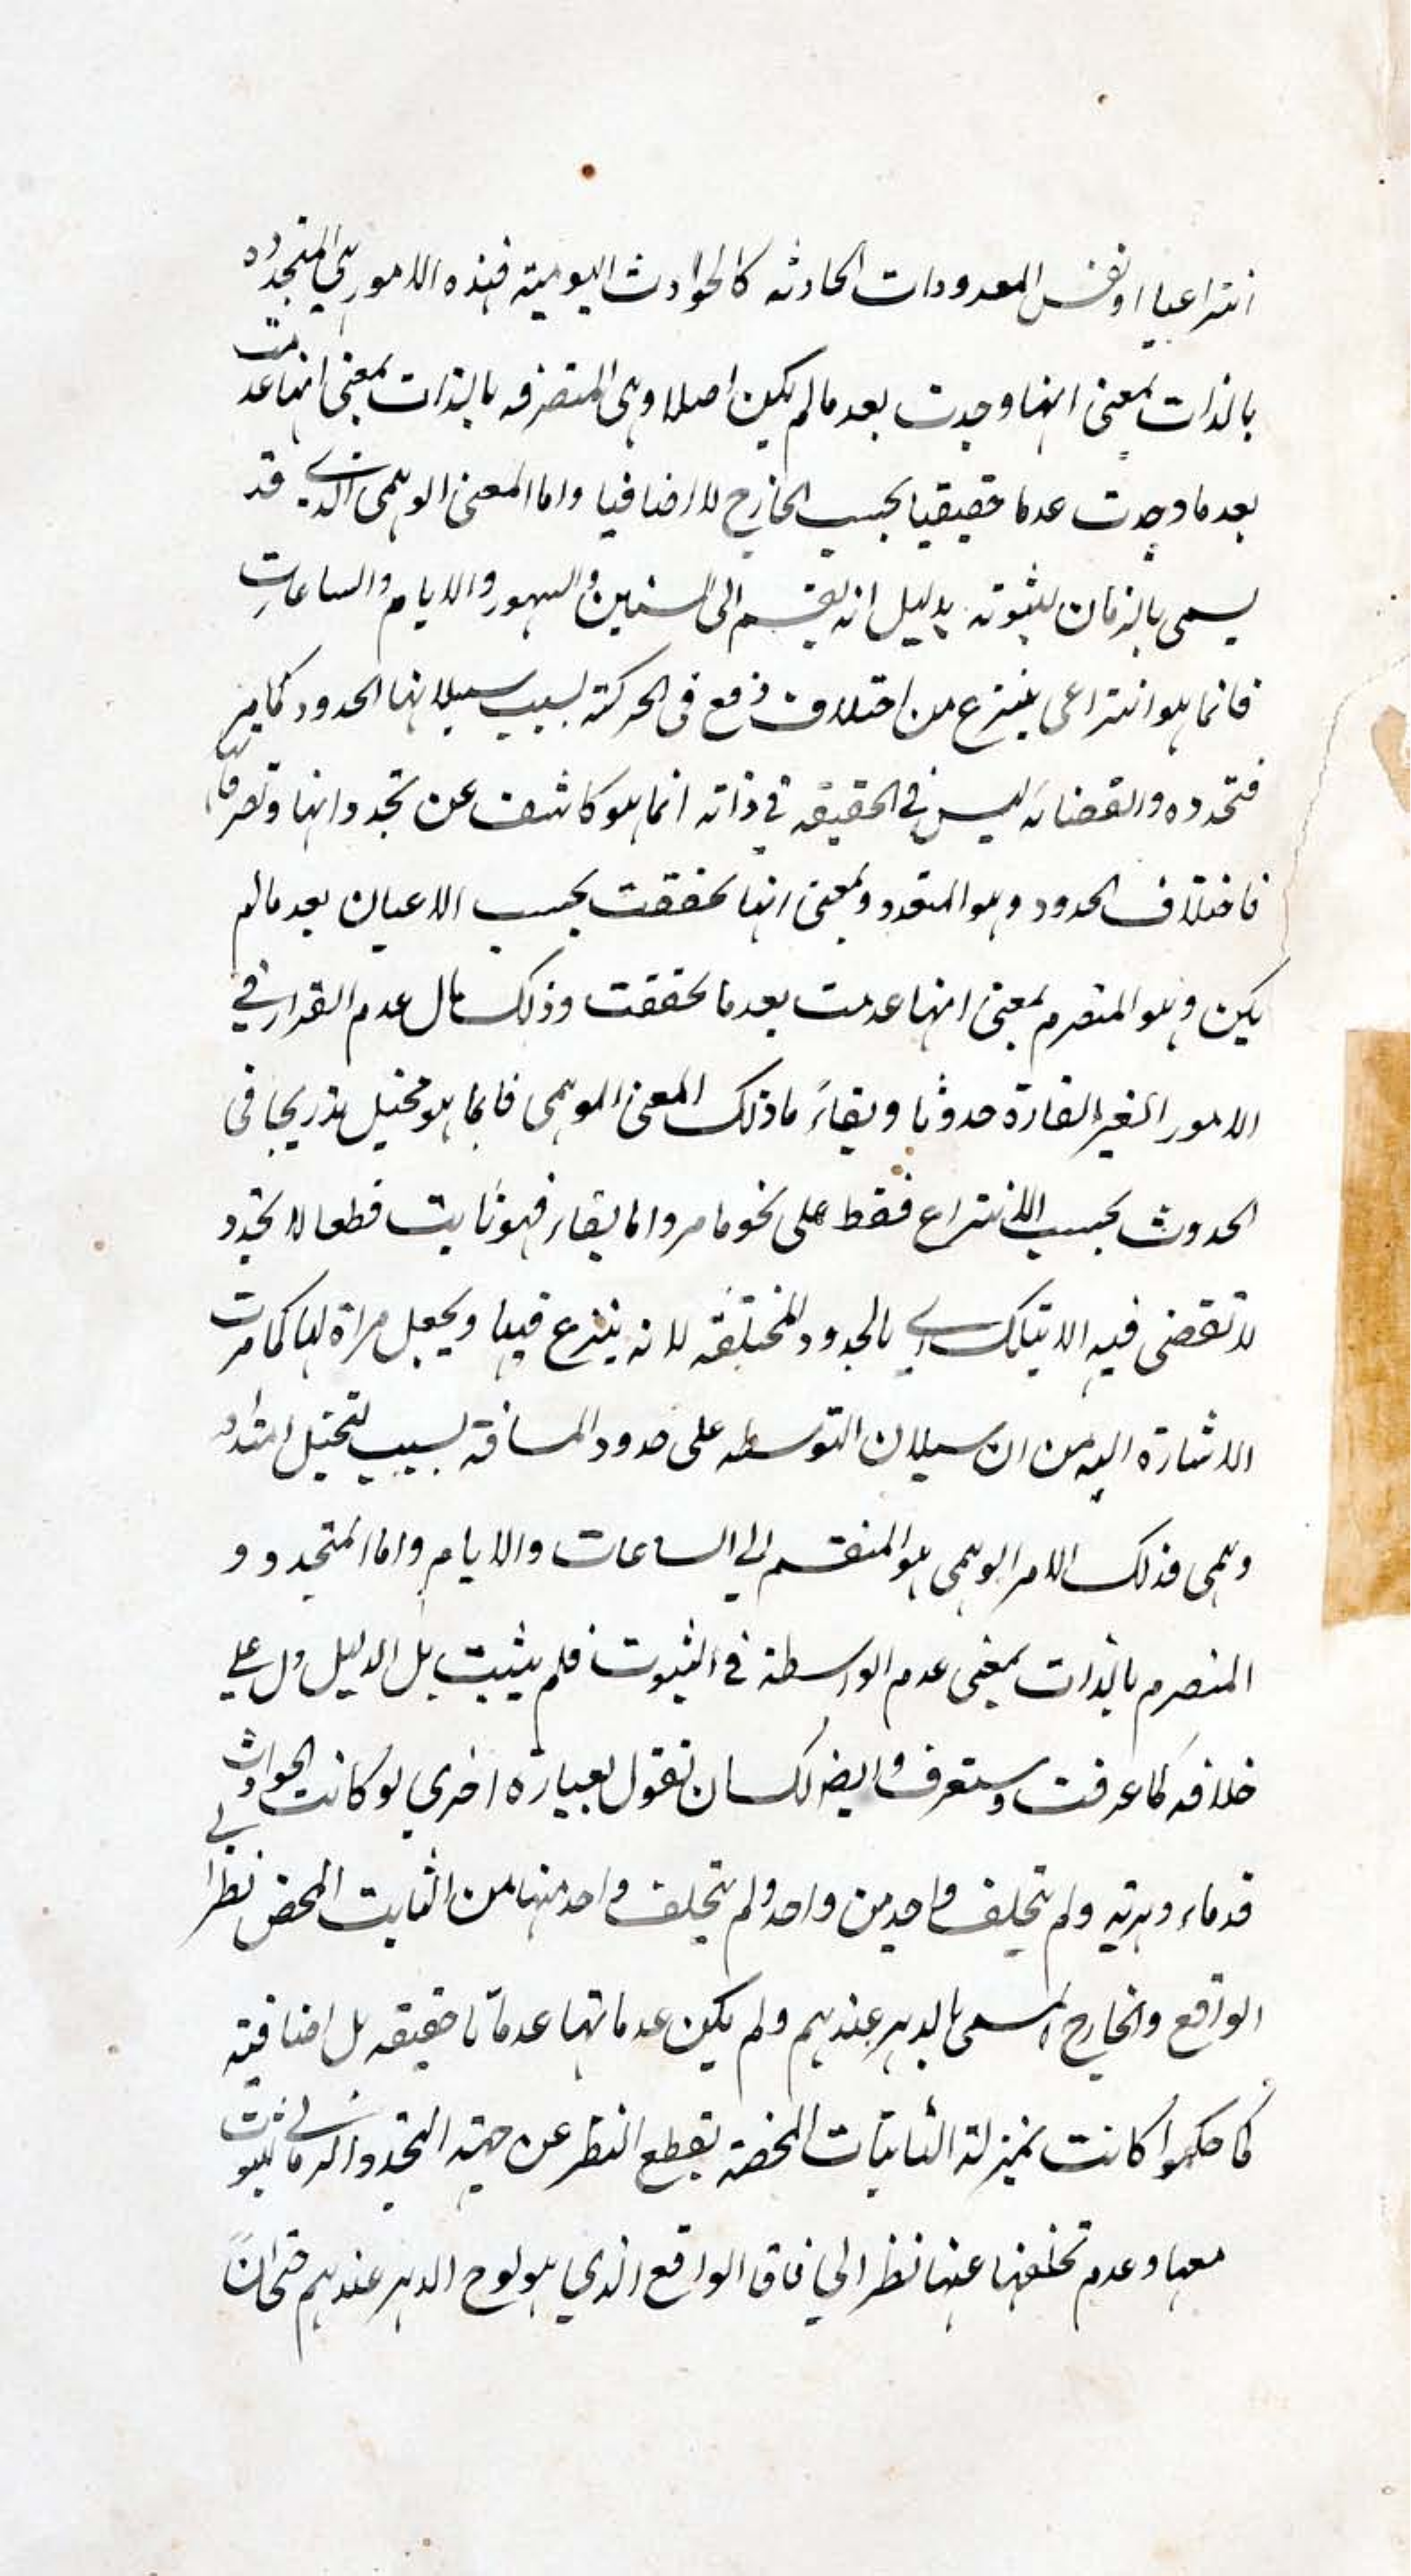 انتزاعيا او نفس المعدودات الحادثه كالحوادث اليوميته فهذه الامور هي المتجدده
بالذات بمعنى انها وجدت بعد ما لم يكن اصلا وهى المتصرفه بالذات بمعنى انها عدمت
بعد ما وجدت عدما حقيقيا بحسب الخارج لا اضافيا واما المعنى الوهمى الذي قد
يسمى بالزمان لثبوته بدليل انه يقسم الى السنين والشهور والايام والساعات
فانما هو انتزاعى ينتزع من اختلاف وقع فى الحركته بسبب سيلانها الحدود كما مر
فتجدده وانقضائه ليس في الحقيقه في ذاته انما هو كاشف عن تجدد انها وتصرماتها
فاختلاف الحدود وهو المتعدد وبمعنى انها تحققت بحسب الاعيان بعد مالم
يكن وهو المتصرم بمعنى انها عدمت بعد ما تحققت وذلك مال عدم القرار في
الامور الغير القارة حدوثا وبقاءً ما ذلك المعنى الوهمى فانما هو تخيل تدريجا فى
الحدوث بحسب الانتزاع فقط على نحو ما مر واما بقاء فهو ثابت قطعا لا تجدد
لا تقضى فيه الا بتلك اي بالحدود المختلفه لانه ينتزع فيها ويجعل مراة لها كما مرت
الاشارة اليه من ان سيلان التوسطه على حدود المسافة بسبب لتخيل امتداد
وهمى فذلك الامر الوهمى هو المنقسم الى الساعات والايام واما المتجدد و
المنصرم بالذات بمعنى عدم الواسطة في الثبوت فلم يثبت بل الدليل دل على
خلافه كما عرفت وستعرف وايضا لك ان تقول بعبارة اخري لو كانت الحوادث
قدماء دهريه ولم يتخلف واحد من واحد ولم يتخلف واحد منها من الثابت المحض نظرا في
الواقع والخارج المسمى بالدهر عندهم ولم يكن عدماتها عدماتا حقيقه بل اضافيته
كما حكموا كانت بمنزلة الثابتات المحضة بقطع النظر عن جهته التجدد الزماني لثبوت
معها وعدم تخلفها عنها نظرا الي فاق الواقع الذي هو لوح الدهر عندهم حتى ان